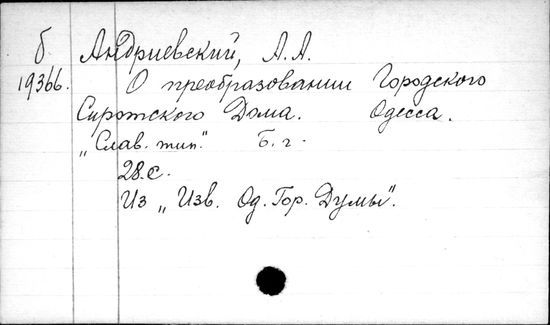 б. Андриевский, А.А.
19366. О преобразовании Городского
Сиротского Дома. Одесса.
„Слав. тип." Б. г.
28.с.
Из „Изв. Од. Гор. Думы".